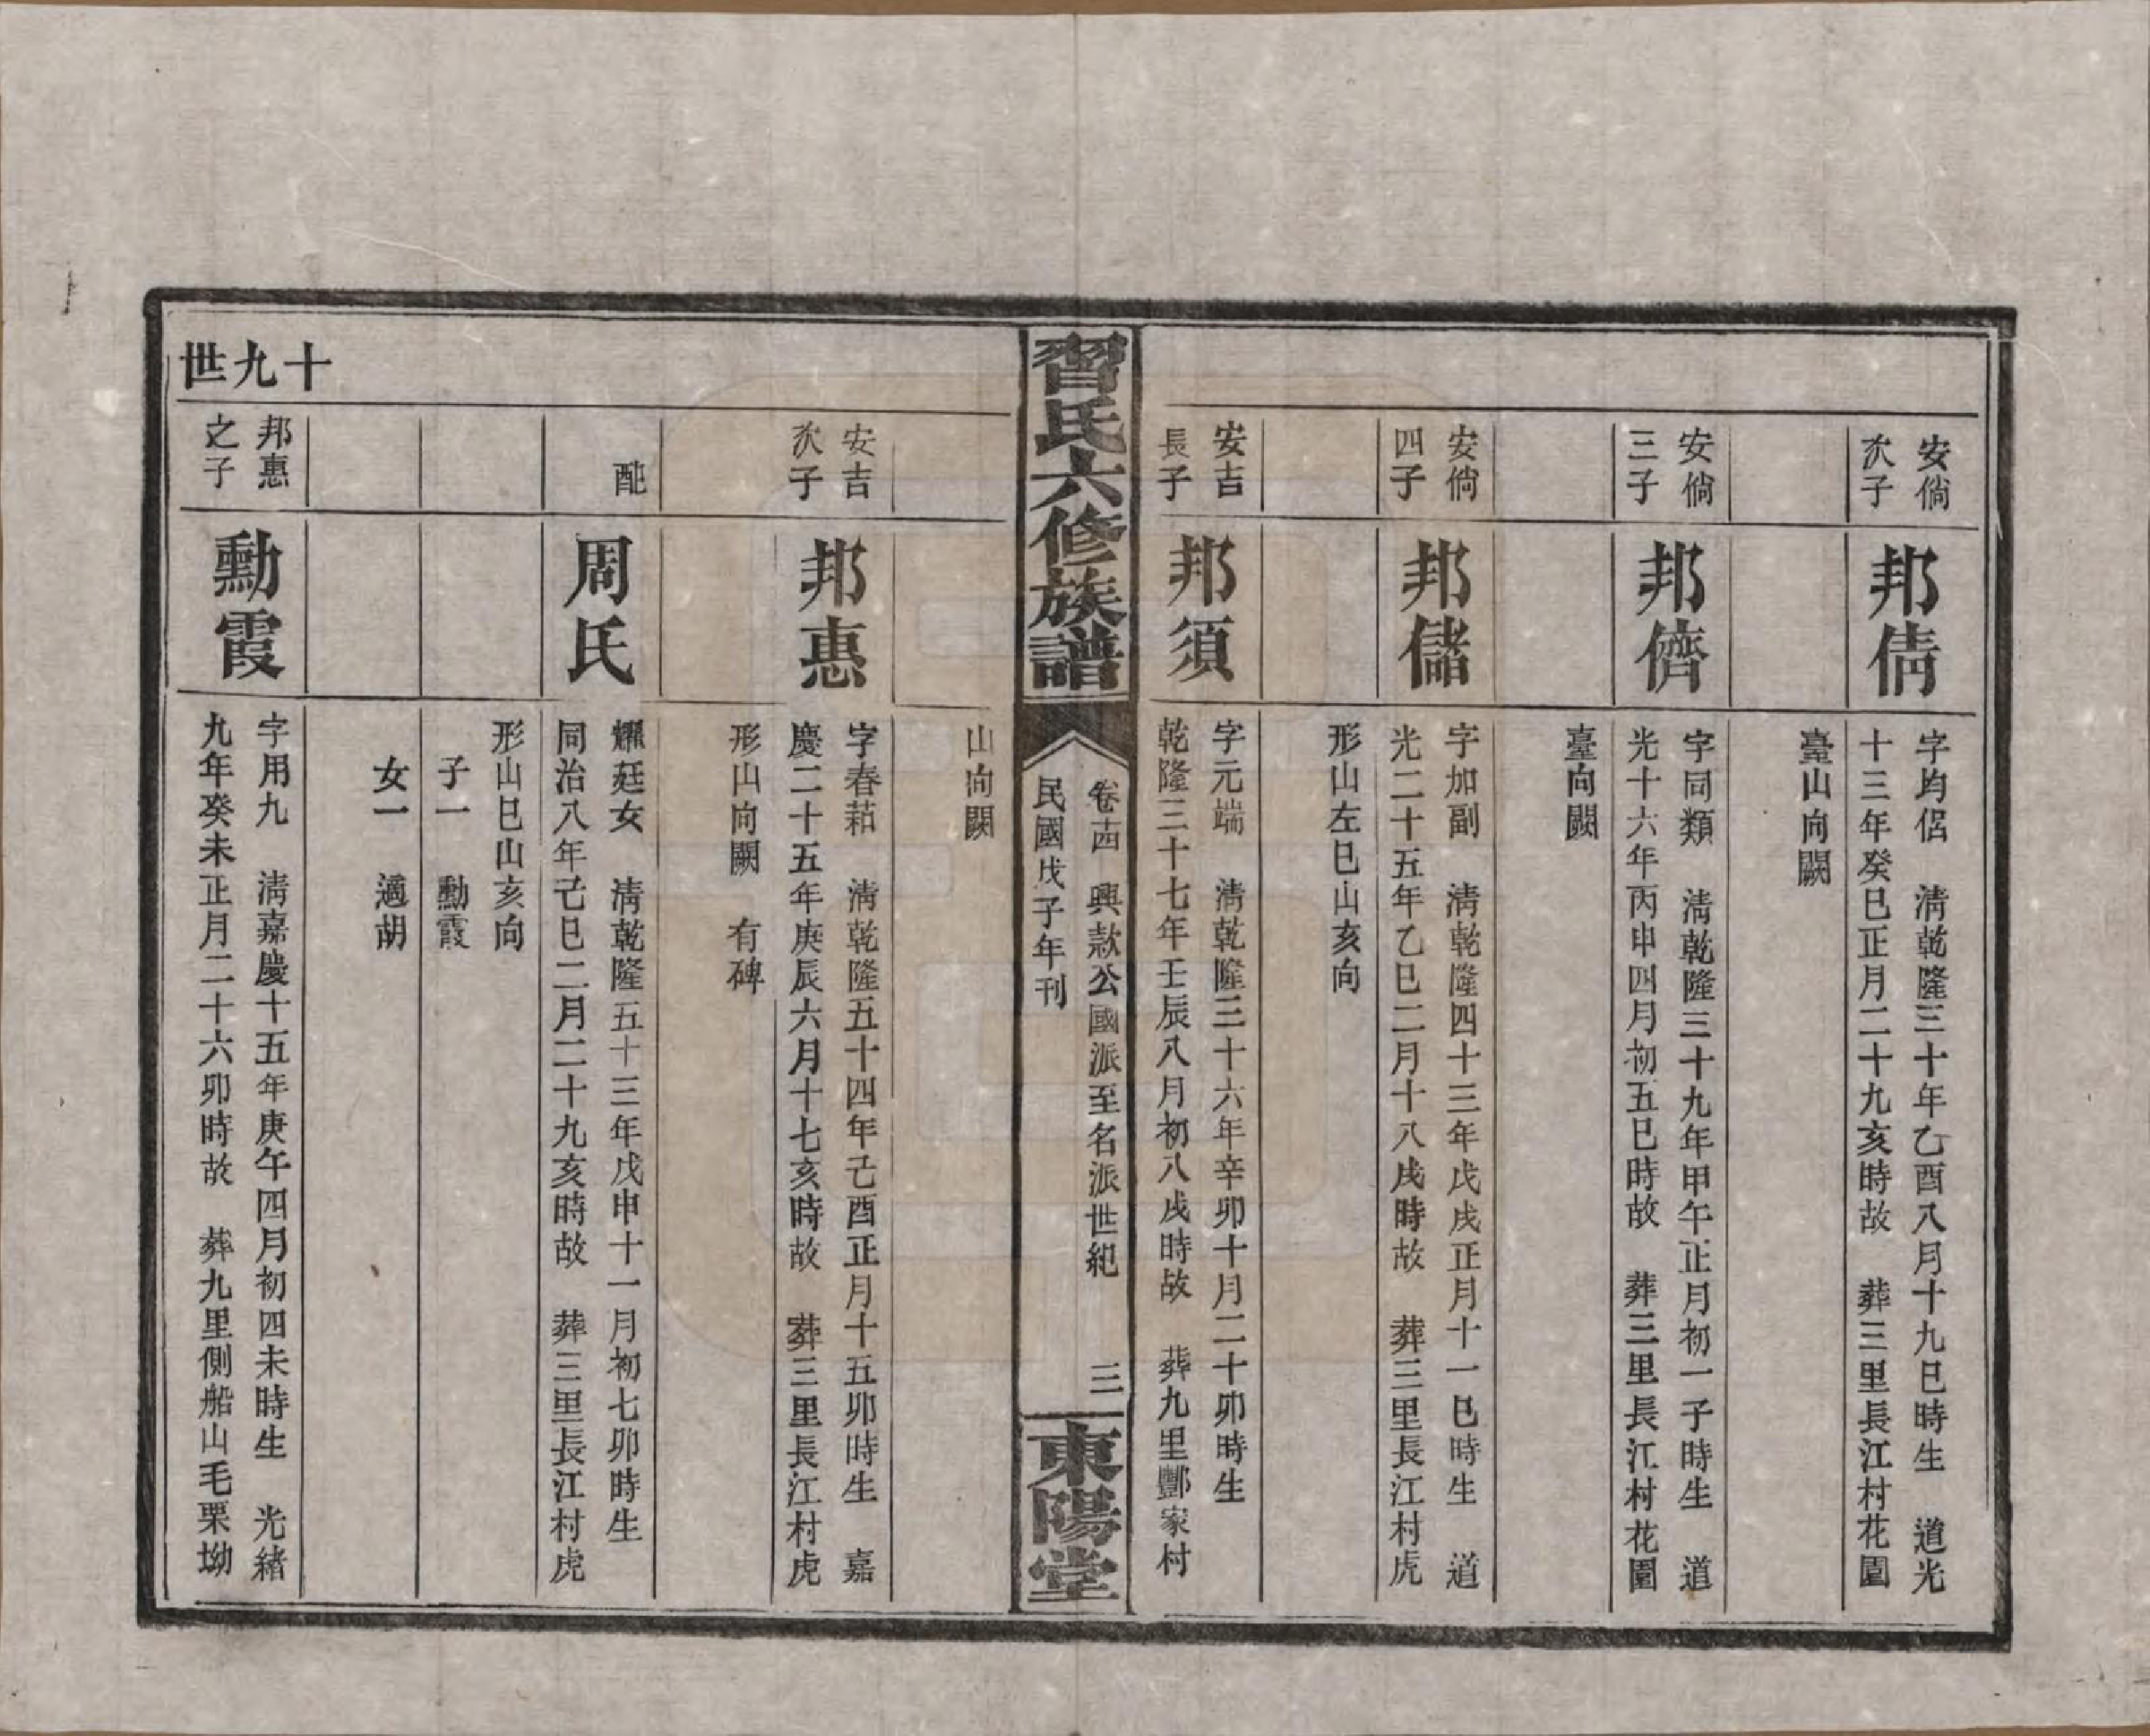 安倘
次子
邦倩
字均侶　淸乾隆三十年乙酉八月十九巳時生　道光
十三年癸巳正月二十九亥時故　葬三里長江村花園
臺山向闕
安倘
三子
邦儕
字同類　淸乾隆三十九年甲午正月初一子時生　道
光十六年丙申四月初五巳時故　葬三里長江村花園
臺向闕
安倘
四子
邦儲
字加副　淸乾隆四十三年戊戌正月十一巳時生　道
光二十五年乙巳二月十八戌時故　葬三里長江村虎
形山左巳山亥向
安吉
長子
邦須
字元端　淸乾隆三十六年辛卯十月二十卯時生
乾隆三十七年壬辰八月初八戌時故　葬九里酆家村
習氏六修族譜
卷十四　興款公國派至名派世紀　三
民國戊子年刊
東陽堂
山向闕
安吉
次子
邦惠
字春萂　淸乾隆五十四年己酉正月十五卯時生　嘉
慶二十五年庚辰六月十七亥時故　葬三里長江村虎
形山向闕　有碑
配
周氏
耀廷女　淸乾隆五十三年戊申十一月初七卯時生
同治八年己巳二月二十九亥時故　葬三里長江村虎
形山巳山亥向
子一　勳霞
女一　適胡
十九世
邦惠
之子
勳霞
字用九　淸嘉慶十五年庚午四月初四未時生　光緒
九年癸未正月二十六卯時故　葬九里側船山毛栗坳